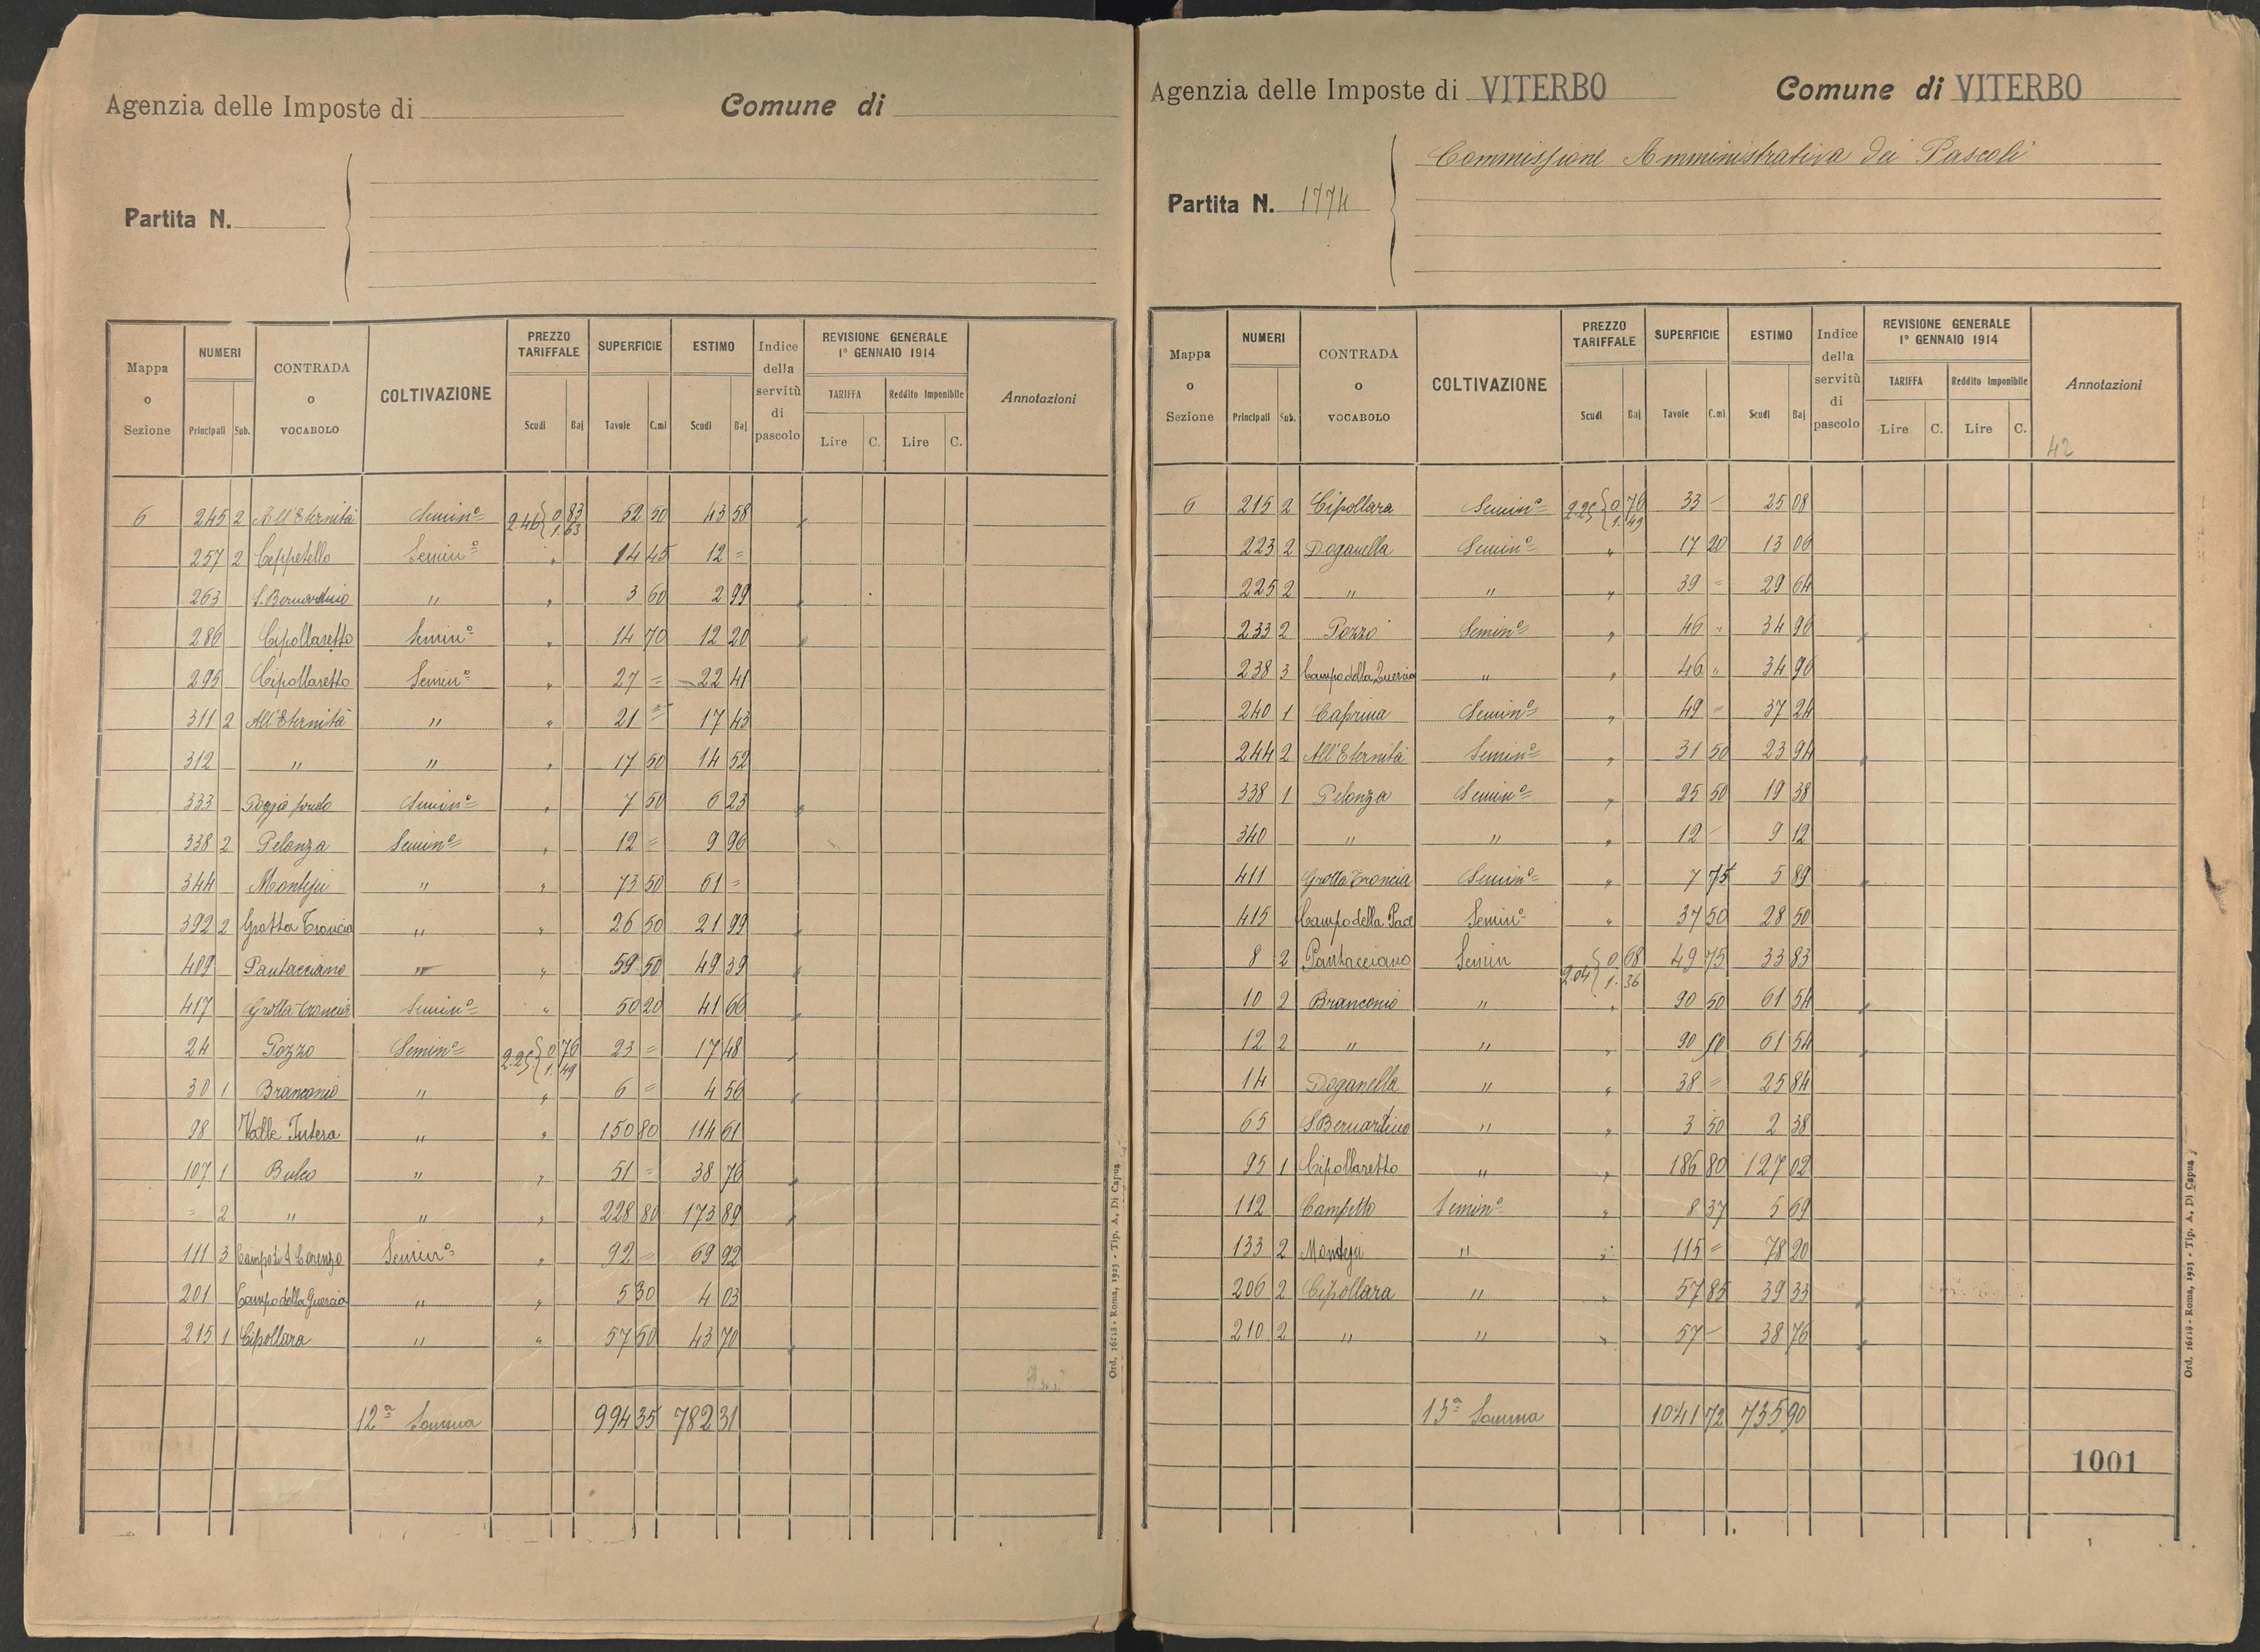 Agenzia delle Imposte di
Comune di
Partita N.
Mappa o Sezione | NUMERI Principali Sub. | CONTRADA o VOCABOLO | COLTIVAZIONE | PREZZO TARIFFALE Scudi Baj | SUPERFICIE Tavole C.mi | ESTIMO Scudi Baj | Indice della servitù di pascolo | REVISIONE GENERALE 1° GENNAIO 1914 TARIFFA Lire C. Reddito Imponibile Lire C. | Annotazioni
6 245 2 All'Eternità Semin° 2.46 { 0 83 1.63 52 50 43 58
257 2 Ceppetello Semin° " 14 45 12 =
263 S. Bernardino " " 3 60 2 99
286 Cipollaretto Semin° " 14 70 12 20
295 Cipollaretto Semin° " 27 = 22 41
311 2 All'Eternità " " 21 = 17 43
312 " " " 17 50 14 52
333 Poggio Semin° " 7 50 6 23
338 2 Pelonza Semin° " 12 = 9 96
344 Monteju " " 73 50 61 =
392 2 Grotta Troncia " " 26 50 21 99
409 Pantacciano " " 59 50 49 39
417 Grotta Troncia Semin° " 50 20 41 66
24 Pozzo Semin° 2.25 { 0 76 1.49 23 = 17 48
30 1 Branconio " " 6 = 4 56
98 Valle " " 150 80 114 61
107 1 " " 51 = 38 76
= 2 " " " 228 80 173 89
111 3 Campo di S. Lorenzo Semin° " 92 = 69 92
201 Campo della Quercia " " 5 30 4 03
215 1 Cipollara " " 57 50 43 70
12ª Somma 994 35 782 31
Ord. 16118 - Roma, 1923 - Tip. A. Di Capua
Agenzia delle Imposte di VITERBO
Comune di VITERBO
Commissione Amministrativa dei Pascoli
Partita N. 1774
Mappa o Sezione | NUMERI Principali Sub. | CONTRADA o VOCABOLO | COLTIVAZIONE | PREZZO TARIFFALE Scudi Baj | SUPERFICIE Tavole C.mi | ESTIMO Scudi Baj | Indice della servitù di pascolo | REVISIONE GENERALE 1° GENNAIO 1914 TARIFFA Lire C. Reddito Imponibile Lire C. | Annotazioni
42
6 215 2 Cipollara Semin° 2.25 { 0 76 1.49 33 - 25 08
223 2 Doganella Semin° " 17 20 13 06
225 2 " " " 39 = 29 64
233 2 Pozzo Semin° " 46 " 34 96
238 3 Campo della Quercia " " 46 " 34 96
240 1 Caprina Semin° " 49 = 37 24
244 2 All'Eternità Semin° " 31 50 23 94
338 1 Pelonza Semin° " 25 50 19 38
340 " " " 12 - 9 12
411 Grotta Troncia Semin° " 7 75 5 89
415 Campo della Pace Semin° " 37 50 28 50
8 2 Pantacciano Semin 2.04 { 0 68 1.36 49 75 33 83
10 2 Branconio " " 90 50 61 54
12 2 " " " 90 50 61 54
14 Doganella " " 38 = 25 84
65 S. Bernardino " " 3 50 2 38
95 1 Cipollaretto " " 186 80 127 02
112 Campetto Semin° " 8 37 5 69
133 2 Monteju " " 115 = 78 20
206 2 Cipollara " " 57 85 39 33
210 2 " " " 57 - 38 76
13ª Somma 1041 72 735 90
1001
Ord. 16118 - Roma, 1923 - Tip. A. Di Capua